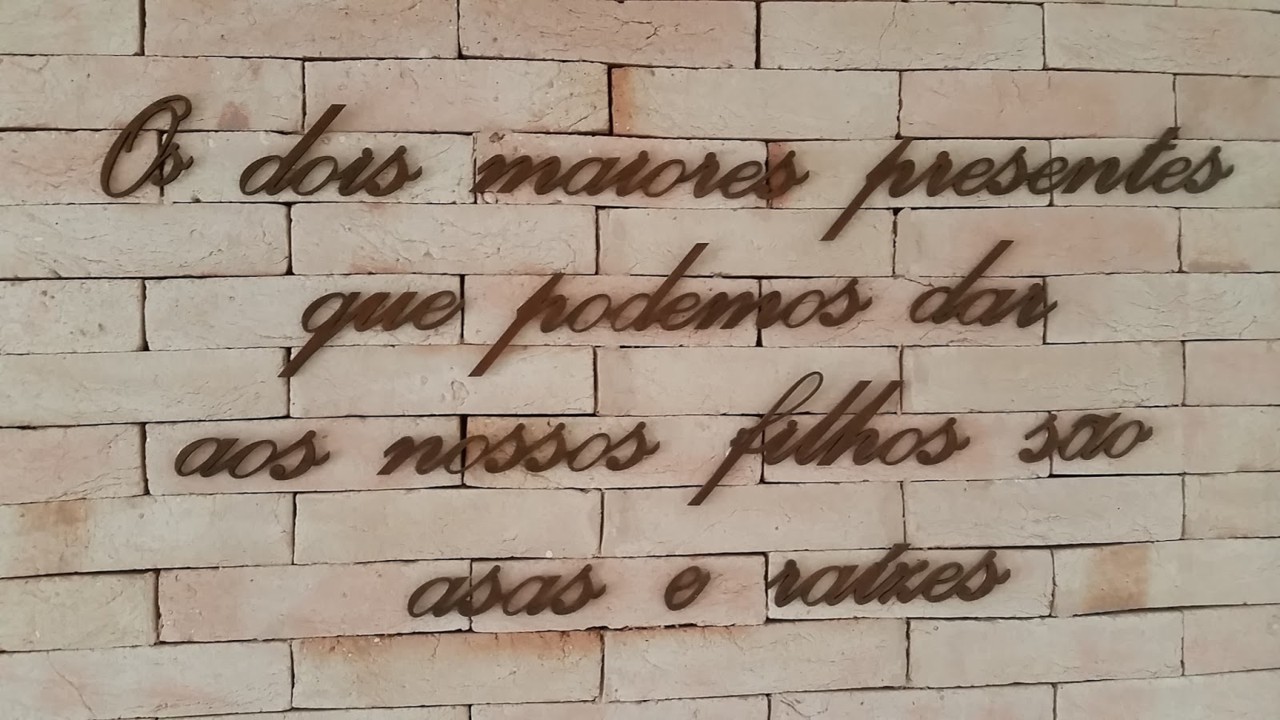 Os dois maiores presentes
que podemos dar
aos nossos filhos são
asas e raízes